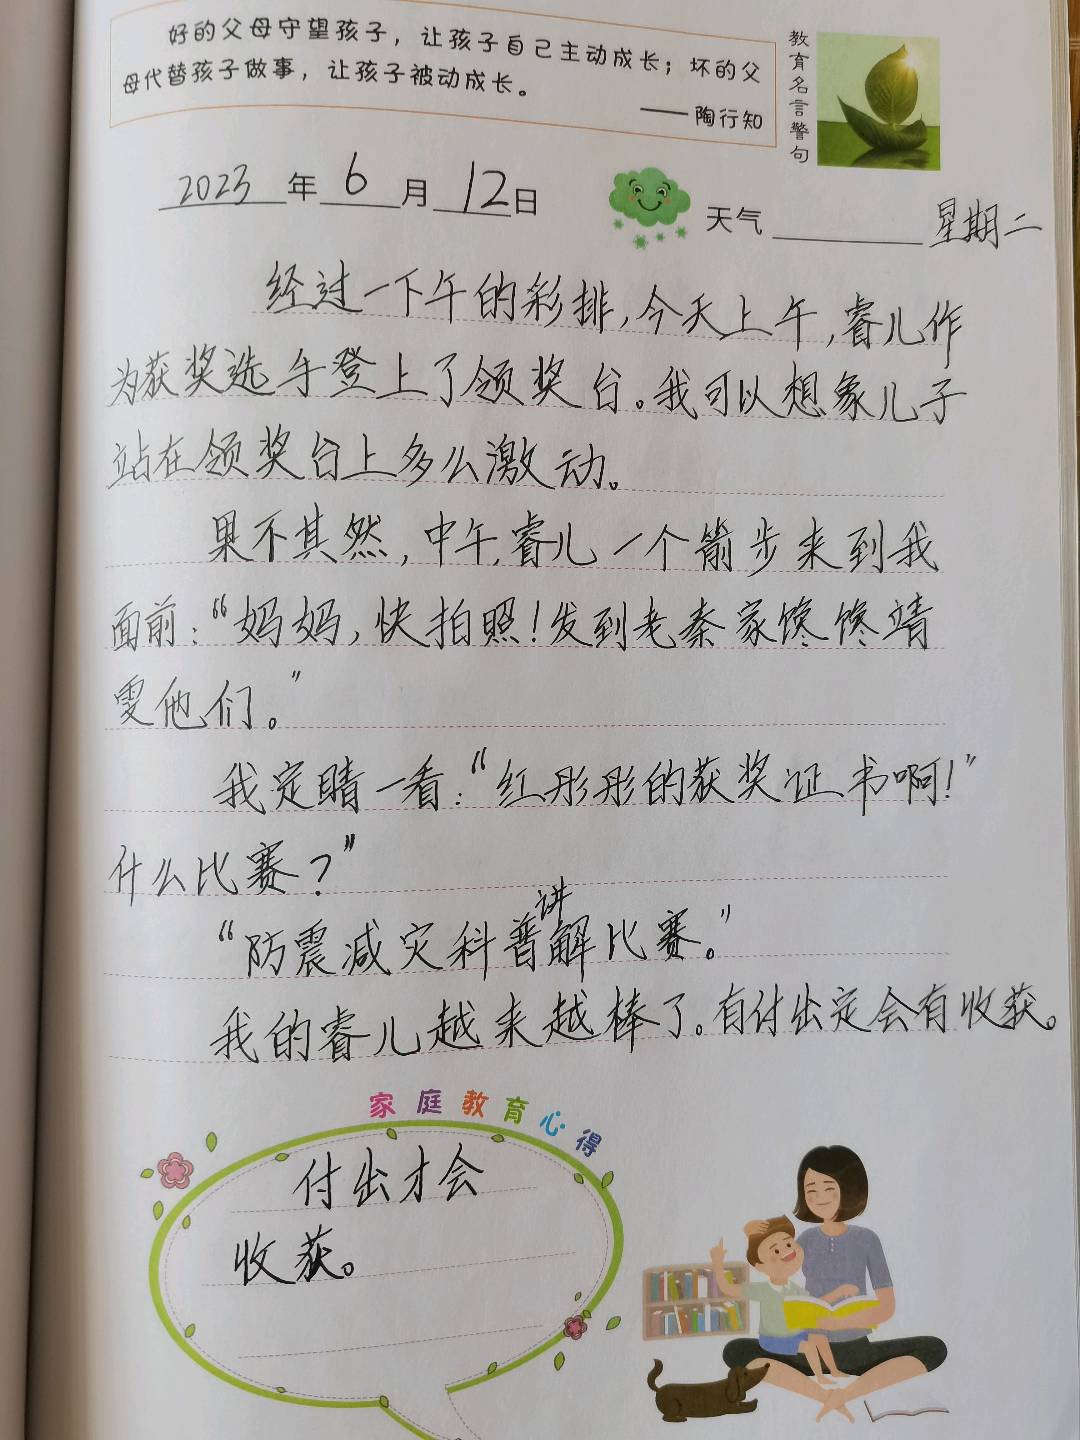 好的父母守望孩子，让孩子自己主动成长；坏的父
母代替孩子做事，让孩子被动成长。
——陶行知
教育名言警句
2023年6月12日 天气 星期二
经过一下午的彩排,今天上午,睿儿作
为获奖选手登上了领奖台。我可以想象儿子
站在领奖台上多么激动。
果不其然,中午,睿儿一个箭步来到我
面前:“妈妈,快拍照!发到老秦家馋馋靖
雯他们。”
我定睛一看:“红彤彤的获奖证书啊!”
什么比赛?”
“防震减灾科普讲解比赛。”
我的睿儿越来越棒了。有付出定会有收获。
家庭教育心得
付出才会
收获。